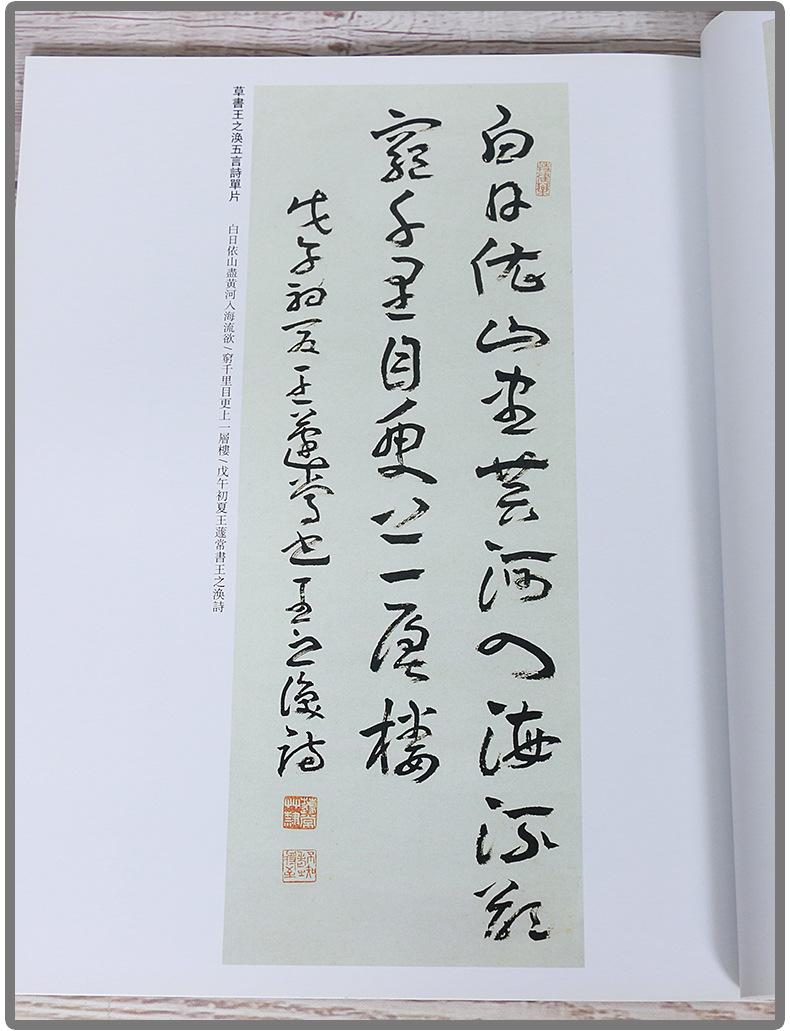 白日依山盡黃河入海流欲
窮千里目更上一層樓
戊午初夏王蘧常書王之渙詩
草書王之渙五言詩單片
白日依山盡黃河入海流欲/窮千里目更上一層樓/戊午初夏王蘧常書王之渙詩